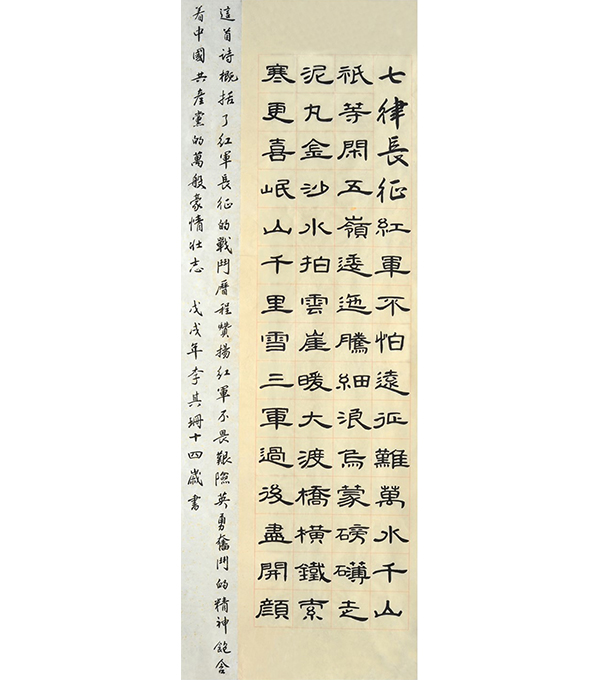 七律長征紅軍不怕遠征難萬水千山
祇等閑五嶺逶迤騰細浪烏蒙磅礴走
泥丸金沙水拍雲崖暖大渡橋橫鐵索
寒更喜岷山千里雪三軍過後盡開顔
這首诗概括了紅軍長征的戰鬥曆程贊揚紅軍不畏艱險英勇奮鬥的精神飽含
着中國共產黨的萬般豪情壯志 戊戌年李其珊十四歲書